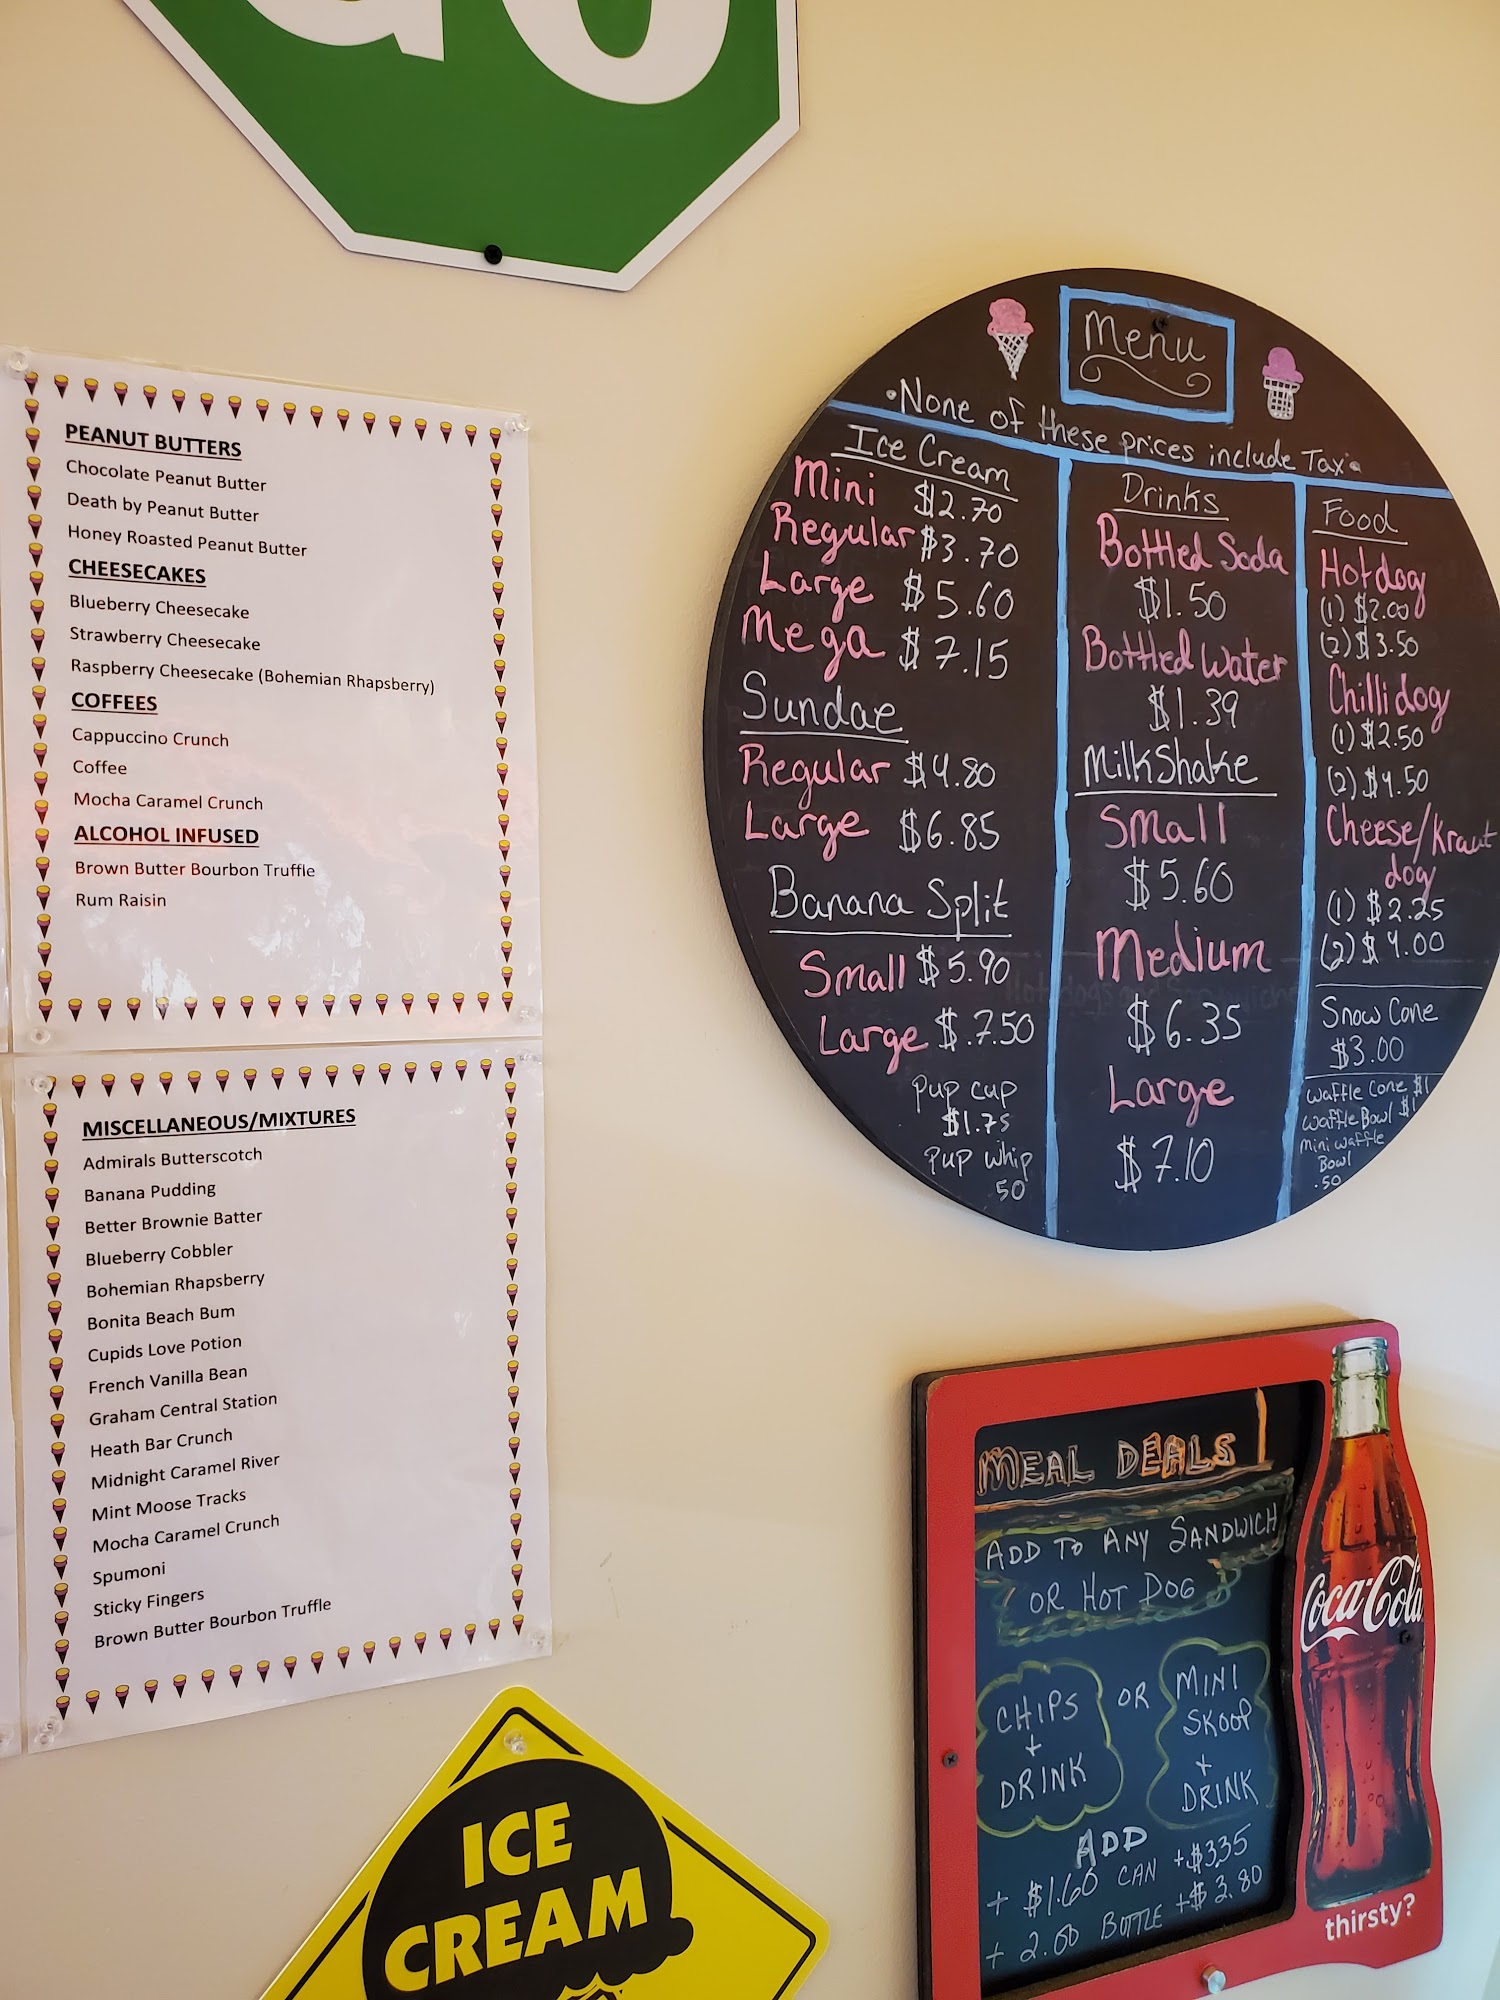 GO
PEANUT BUTTERS
Chocolate Peanut Butter
Death by Peanut Butter
Honey Roasted Peanut Butter
CHEESECAKES
Blueberry Cheesecake
Strawberry Cheesecake
Raspberry Cheesecake (Bohemian Rhapsberry)
COFFEES
Cappuccino Crunch
Coffee
Mocha Caramel Crunch
ALCOHOL INFUSED
Brown Butter Bourbon Truffle
Rum Raisin
MISCELLANEOUS/MIXTURES
Admirals Butterscotch
Banana Pudding
Better Brownie Batter
Blueberry Cobbler
Bohemian Rhapsberry
Bonita Beach Bum
Cupids Love Potion
French Vanilla Bean
Graham Central Station
Heath Bar Crunch
Midnight Caramel River
Mint Moose Tracks
Mocha Caramel Crunch
Spumoni
Sticky Fingers
Brown Butter Bourbon Truffle
Menu
•None of these prices include Tax•
Ice Cream
Mini $2.70
Regular $3.70
Large $5.60
Mega $7.15
Sundae
Regular $4.80
Large $6.85
Banana Split
Small $5.90
Large $.7.50
Pup cup
$1.75
Pup whip
50
Drinks
Bottled Soda
$1.50
Bottled Water
$1.39
MilkShake
Small
$5.60
Medium
$6.35
Large
$7.10
Food
Hotdog
(1) $2.00
(2) $3.50
Chilli dog
(1) $2.50
(2) $4.50
Cheese/Kraut
dog
(1) $2.25
(2) $4.00
Snow Cone
$3.00
Waffle Cone $1
Waffle Bowl $1
Mini Waffle
Bowl
.50
MEAL DEALS!
ADD TO ANY SANDWICH
OR HOT DOG
CHIPS
+
DRINK
OR
MINI
SKOOP
+
DRINK
ADD
+ $1.60 CAN +$3.35
+ 2.00 BOTTLE +$3.80
Coca-Cola
thirsty?
ICE
CREAM